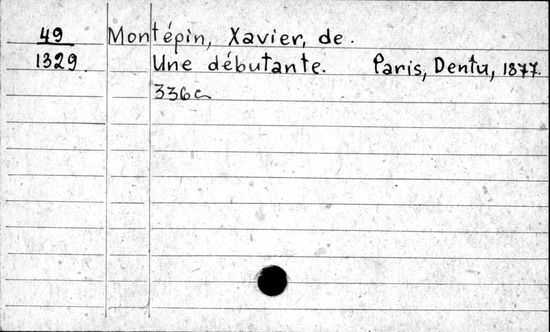 49 Montépin, Xavier, de.
1329 Une débutante. Paris, Dentu, 1877.
336 c